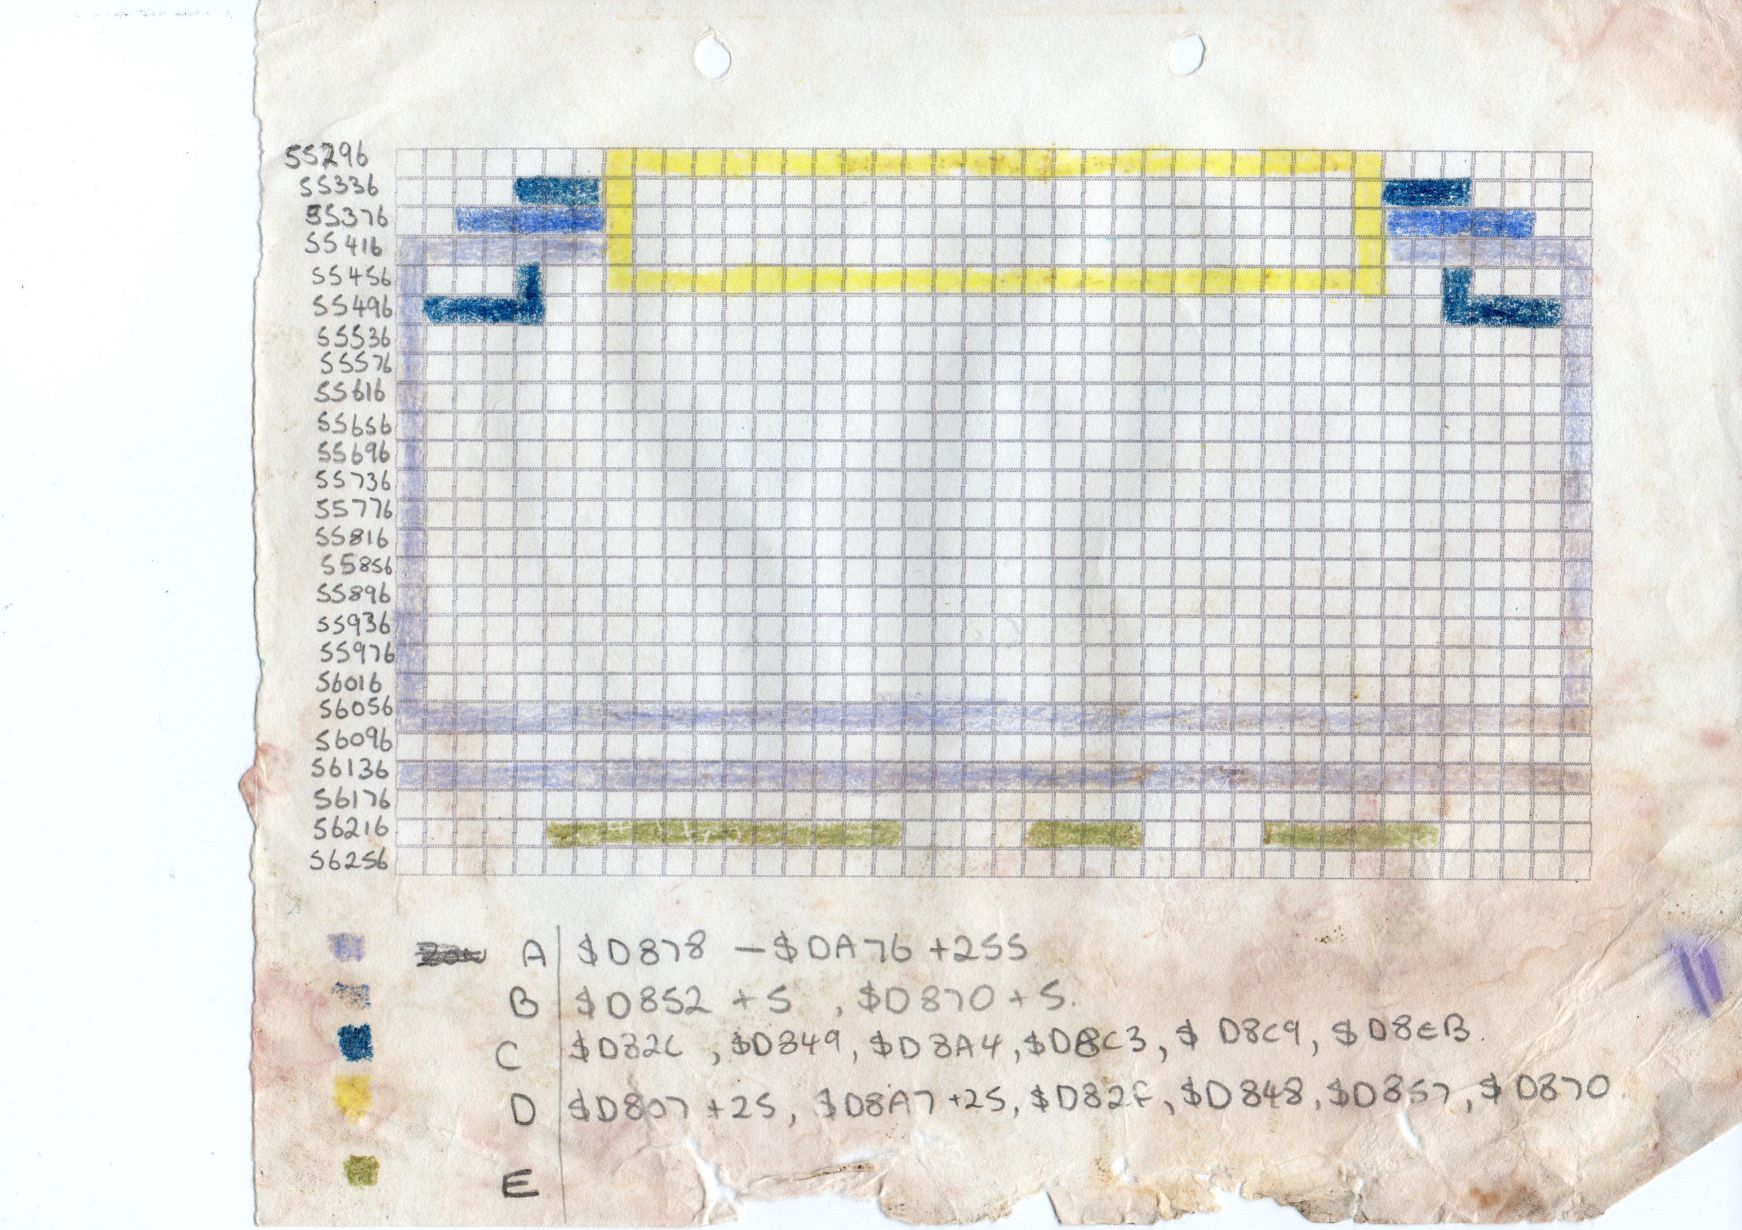 55296
55336
55376
55416
55456
55496
55536
55576
55616
55656
55696
55736
55776
55816
55856
55896
55936
55976
56016
56056
56096
56136
56176
56216
56256
A $D878 - $DA76 +255
B $D852 +5 , $D870 +5.
C $D82C , $D849, $D8A4, $D8C3, $ D8C9, $ D8EB.
D $D807 +25, $D8A7 +25, $D82F, $D848, $D857, $ D870.
E